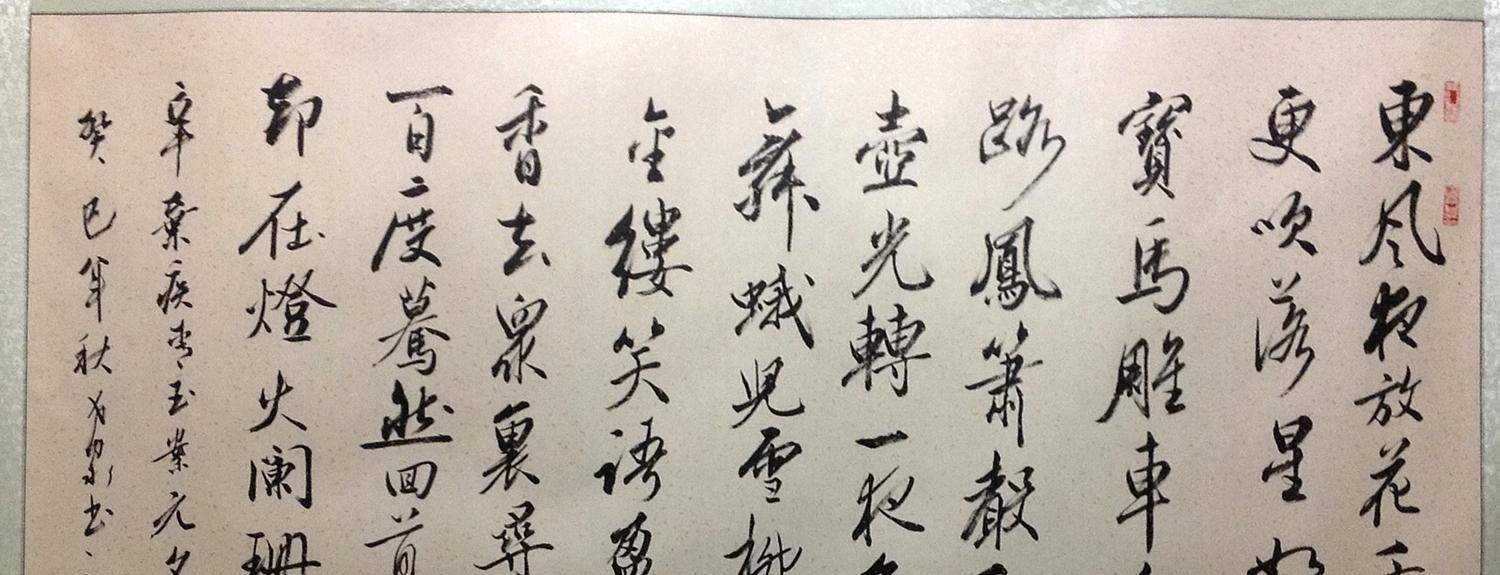 東风夜放花千
更吹落星如
寶馬雕車
路鳳簫聲
壺光轉一夜
舞蛾兒雪柳
金縷笑語盈
香去眾裏尋
百度驀然回首
却在燈火闌珊
辛棄疾青玉案元夕
癸巳年秋书